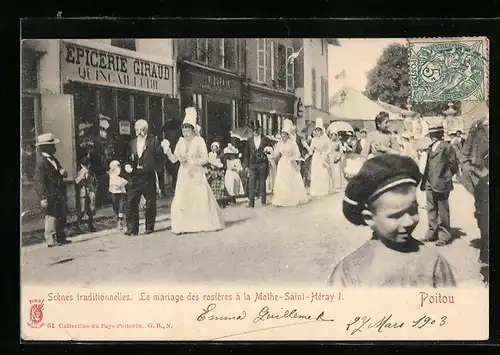 EPICERIE GIRAUD
QUINCAILLERIE
5
Scènes traditionnelles. Le mariage des rosières à la Mothe-Saint-Héray 1.
Poitou
61 Collection du Pays Poitevin. G. B., N.
Emma Guillemet
27 Mars 1903